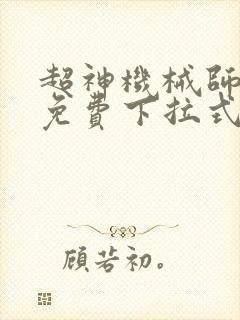 超神機械師
免費下拉式
顧若初。